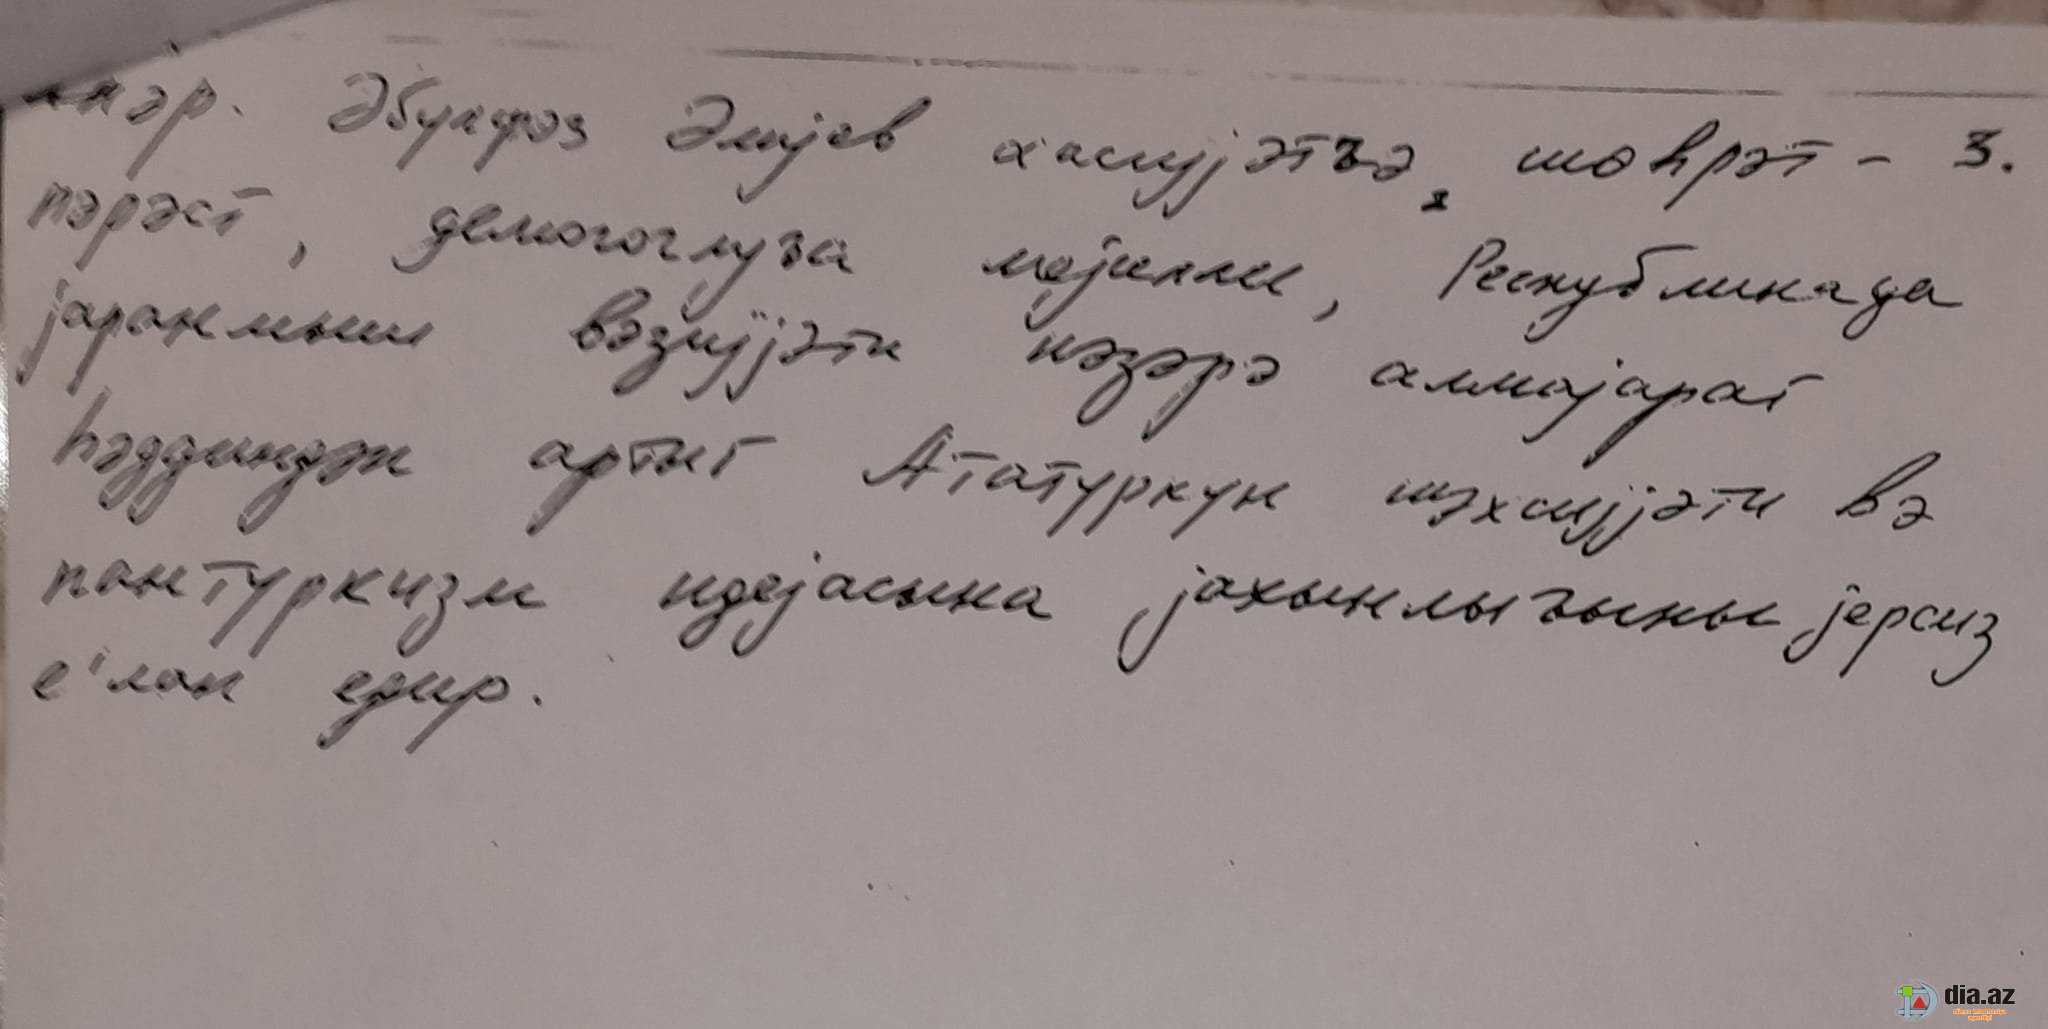 ләр. Әбулфәз Әлијев хасијәтҹә, шөһрәт- 3.
пәрәст, демогоглуға мејилли, Республикада
јаранмыш вәзијјәти нәзәрә алмајараг
һәддиндән артыг Ататуркун шәхсијјәти вә
пантуркизм идејасына јахынлығыны јерсиз
е'лан едир.
dia.az